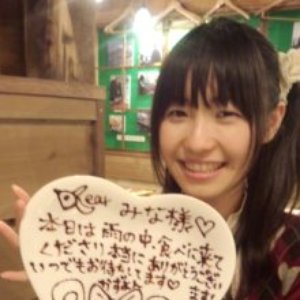 Dear みな様♡
本日は雨の中、食べに来て
くださり本当にありがとうござい
ます
いつでもお待ちしてます♡